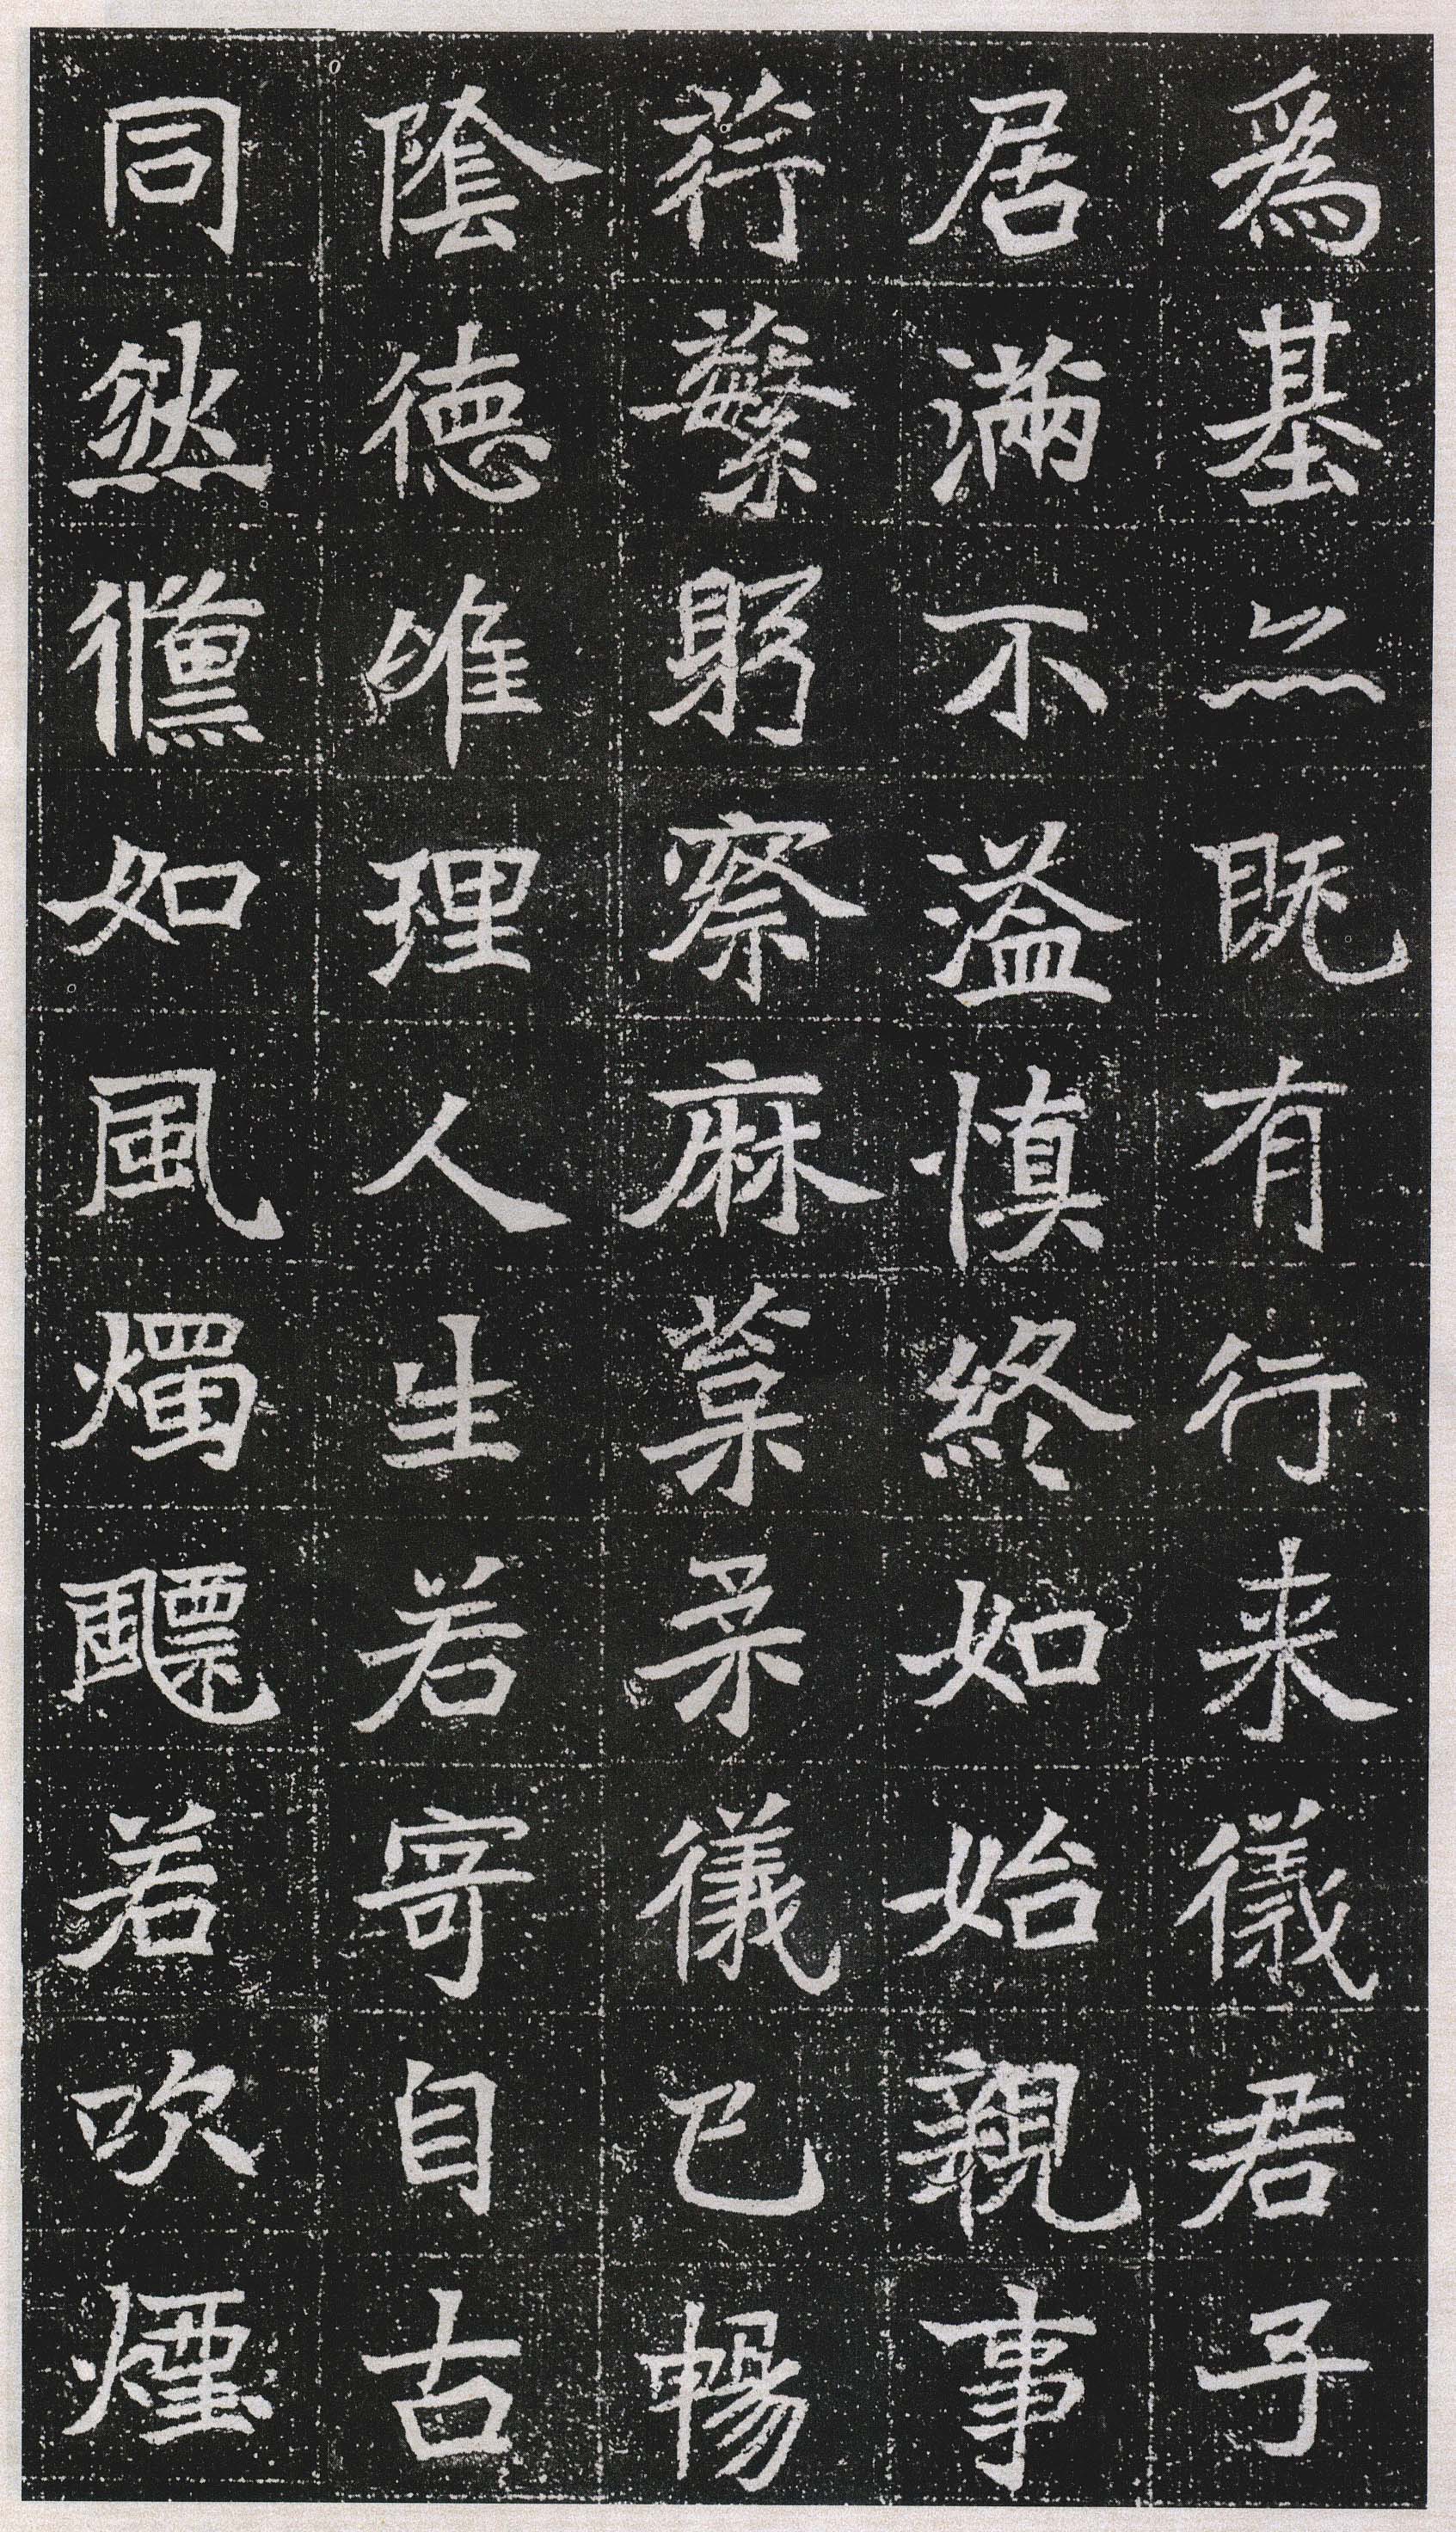 為基亦既有行来儀君子
居滿不溢慎終如始親事
荇蘩躬察麻枲柔儀已暢
陰德唯理人生若寄自古
同然儻如風燭飄若吹煙